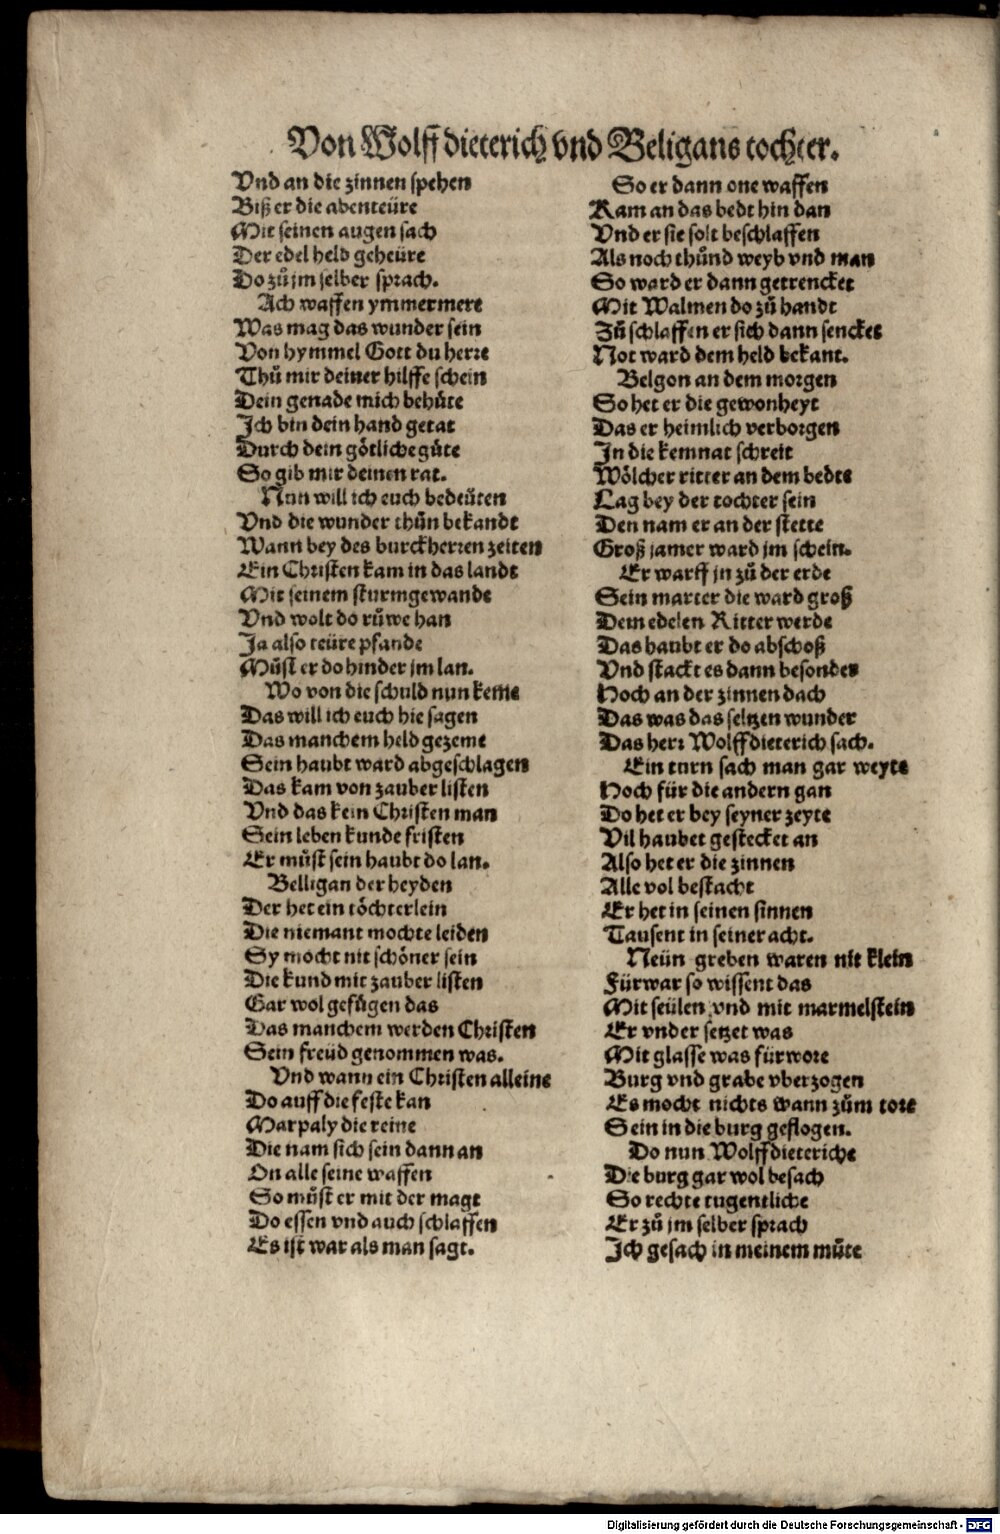 Von Wolff dieterich vnd Beligans tochter.
Vnd an die zinnen spehen
Biß er die abenteüre
Mit seinen augen sach
Der edel held geheüre
Do zů jm selber sprach.
Ach waffen ymmermere
Was mag das wunder sein
Von hymmel Gott du herre
Thů mir deiner hilffe schein
Dein genade mich behůte
Ich bin dein hand getat
Durch dein götliche gůte
So gib mir deinen rat.
Nun will ich euch bedeüten
Vnd die wunder thůn bekandt
Wann bey des burckherren zeiten
Ein Christen kam in das landt
Mit seinem sturmgewande
Vnd wolt do růwe han
Ja also teüre pfande
Můst er do hinder jm lan.
Wo von die schuld nun keme
Das will ich euch hie sagen
Das manchem held gezeme
Sein haubt ward abgeschlagen
Das kam von zauber listen
Vnd das kein Christen man
Sein leben kunde fristen
Er můst sein haubt do lan.
Belligan der heyden
Der het ein töchterlein
Die niemant mochte leiden
Sy mocht nit schöner sein
Die kund mit zauber listen
Gar wol gefůgen das
Das manchem werden Christen
Sein freüd genommen was.
Vnd wann ein Christen alleine
Do auff die feste kan
Marpaly die reine
Die nam sich sein dann an
On alle seine waffen
So můst er mit der magt
Do essen vnd auch schlaffen
Es ist war als man sagt.
So er dann one waffen
Kam an das bedt hin dan
Vnd er sie solt beschlaffen
Als noch thůnd weyb vnd man
So ward er dann getrencket
Mit Walmen do zů handt
Zů schlaffen er sich dann sencket
Not ward dem held bekant.
Belgon an dem morgen
So het er die gewonheyt
Das er heimlich verborgen
In die kemnat schreit
Wölcher ritter an dem bedte
Lag bey der tochter sein
Den nam er an der stette
Groß jamer ward jm schein.
Er warff jn zů der erde
Sein marter die ward groß
Dem edelen Ritter werde
Das haubt er do abschoß
Vnd stackt es dann besonder
Hoch an der zinnen dach
Das was das seltzen wunder
Das herr Wolffdieterich sach.
Ein turn sach man gar weyte
Hoch für die andern gan
Do het er bey seyner zeyte
Vil haubet gestecket an
Also het er die zinnen
Alle vol bestacht
Er het in seinen sinnen
Tausent in seiner acht.
Neün greben waren nit klein
Fürwar so wissent das
Mit seülen vnd mit marmelstein
Er vnder setzet was
Mit glasse was fürwore
Burg vnd grabe vberzogen
Es mocht nichts wann zům tore
Sein in die burg geflogen.
Do nun Wolffdieteriche
Die burg gar wol besach
So rechte tugentliche
Er zů jm selber sprach
Ich gesach in meinem můte
Digitalisierung gefördert durch die Deutsche Forschungsgemeinschaft - DFG